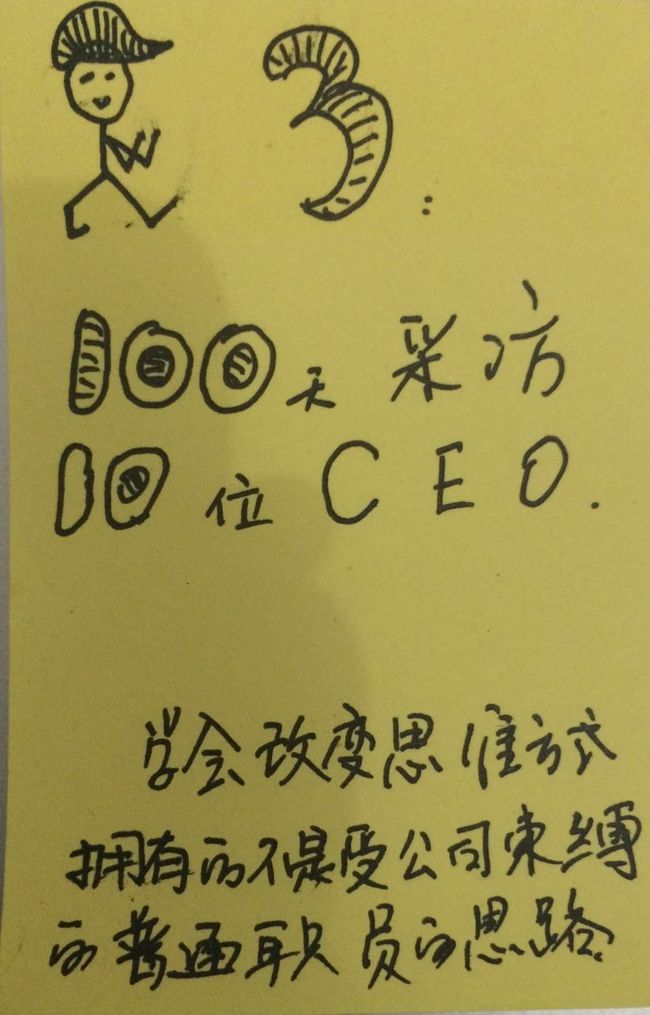 3:
100天采访
10位CEO.
学会改变思维方式
拥有的不是受公司束缚
的普通职员的思路